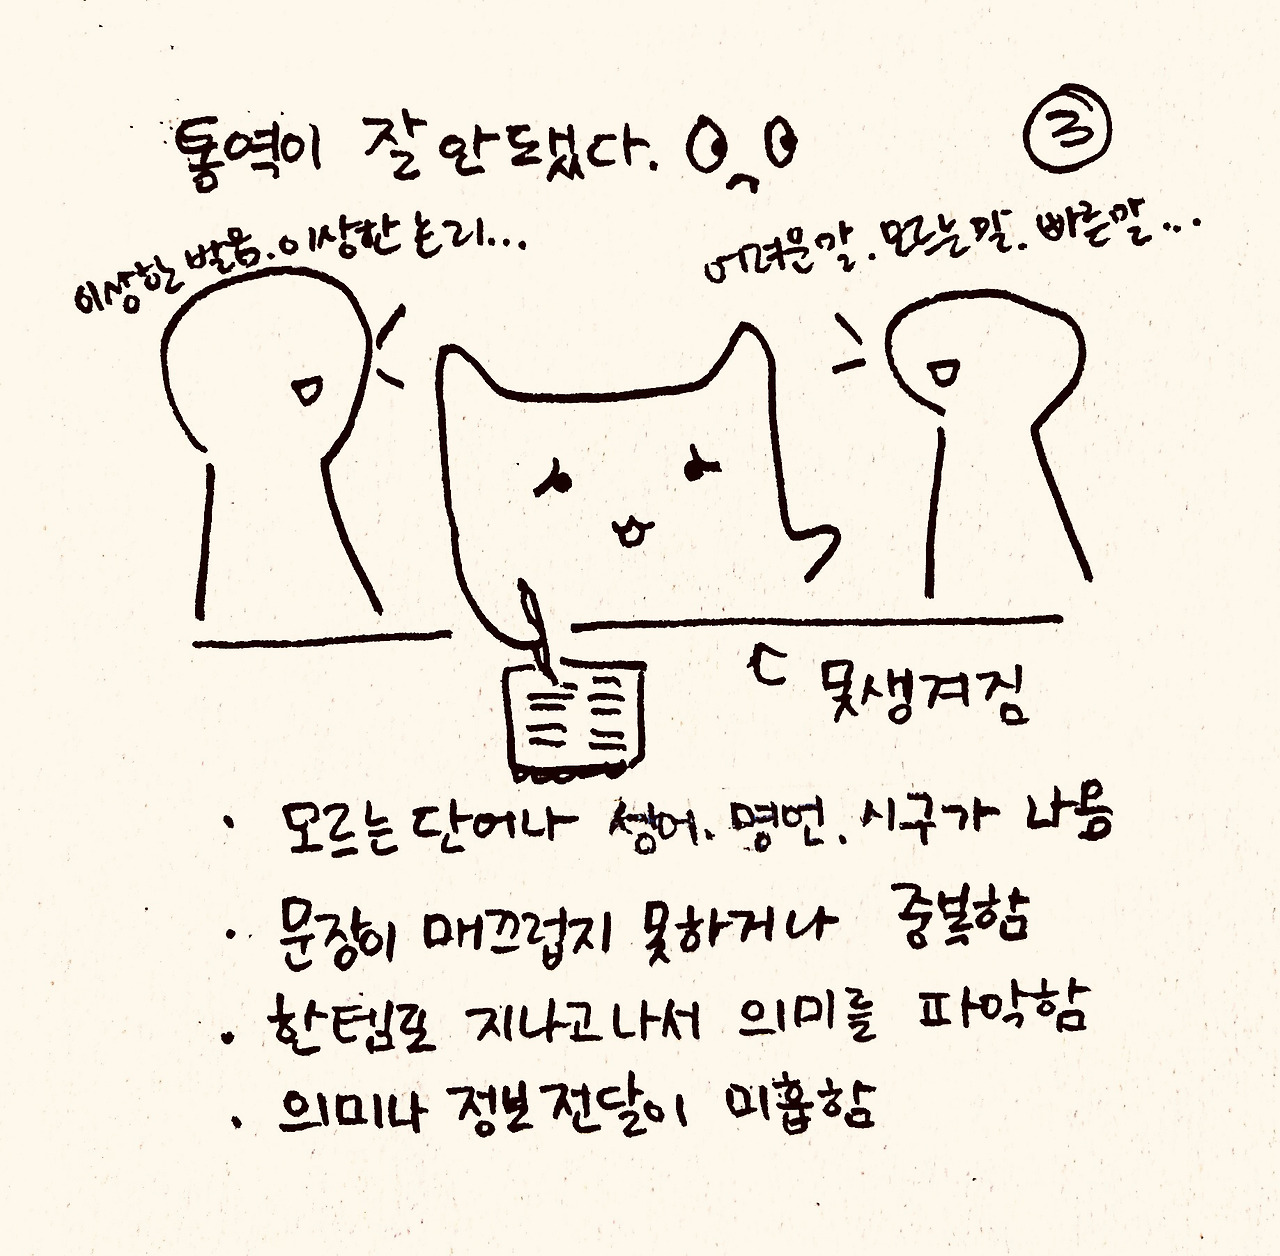 통역이 잘 안됐다.
③
이상한 발음. 이상한 논리...
어려운말. 모르는말. 빠른말...
못생겨짐
· 모르는 단어나 성어. 명언. 시구가 나옴
· 문장이 매끄럽지 못하거나 중복함
· 한템포 지나고나서 의미를 파악함
· 의미나 정보전달이 미흡함